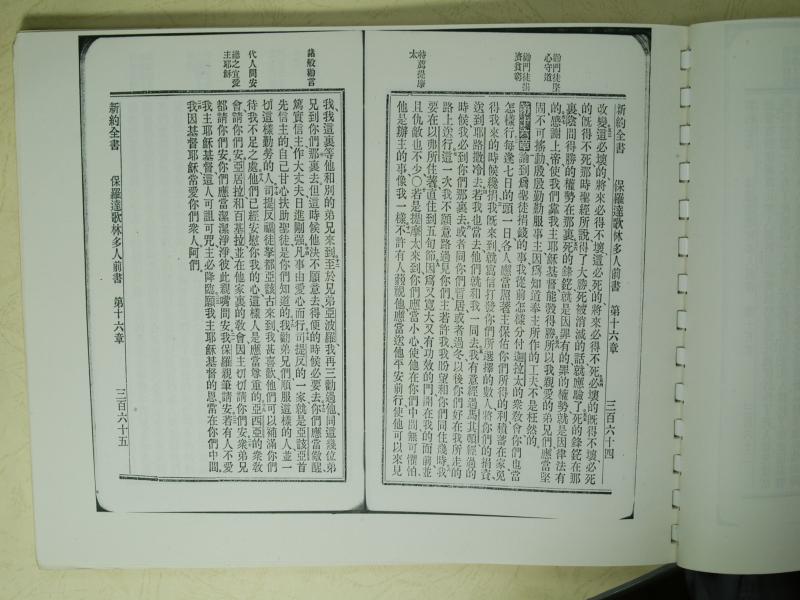 新約全書 保羅達歌林多人前書 第十六章 三百六十四
勸門徒堅
心守道
勸門徒捐
濟貧窮
特薦提摩
太
改變這必壞的將來必得不壞這必死的將來必得不死必壞的既得不壞必死
的既得不死那時聖經所說得了大勝死被消滅的話就應驗了死的鋒鋩在那
裏陰間得勝的權勢在那裏死的鋒鋩就是因罪有的罪的權勢就是因律法有
的感謝上帝使我們靠我主耶穌基督能彀得勝所以我親愛的弟兄們應當堅
固不可搖動殷殷勤勤服事主因爲知道奉主所作的工夫不是枉然的
第十六章 論到爲聖徒捐錢的事我從前怎樣分付迦拉太的衆教會你們也當
怎樣行每逢七日的頭一日各人應當照著主保佑你們所得的利積蓄在家免
得我來的時候纔捐我既來到就寫信打發你們所選擇的數人將你們的捐資
送到耶路撒冷去若我也當去他們就和我一同去我有意經過馬其頓經過的
時候我必到你們那裏去或者同你們暫居或者過冬以後你們好在我所走的
路上送行這一次我不願意路過見你們主若許我我盼望和你們同住幾時我
要在以弗所住著直住到五旬節因爲又寬大又有功效的門開在我的面前並
且仇敵也不少○若是提摩太來到你們應當小心使他在你們中間無可懼怕
他是辦主的事像我一樣不許有人藐視他應當送他平安前行使他可以來見
諸般勸言
代人問安
總之宜愛
主耶穌
我我這裏等他和別的弟兄來到至於兄弟亞波羅我再三勸過他同這幾位弟
兄到你們那裏去但這時候他決不願意去得便的時候必要去你們應當儆醒
篤實信主作大丈夫日進剛强凡事由愛心而行司提反的一家就是亞該亞首
先信主的自己甘心扶助聖徒是你們知道的我勸弟兄們順服這樣的人並一
切這樣勤勞的人司提反福徒拏都亞該古來到我甚喜歡他們可以補滿你們
待我不足之處他們已經安慰你我的心這樣人是應當尊重的亞西亞的衆敎
會請你們安亞居拉和百基拉並在他家裏的敎會因主切切請你們安衆弟兄
都請你們安你們應當潔潔淨淨彼此親嘴問安我保羅親筆請安若有人不愛
我主耶穌基督這人可詛可咒主必降臨願我主耶穌基督的恩常在你們中間
我因基督耶穌常愛你們衆人阿們
新約全書 保羅達歌林多人前書 第十六章 三百六十五